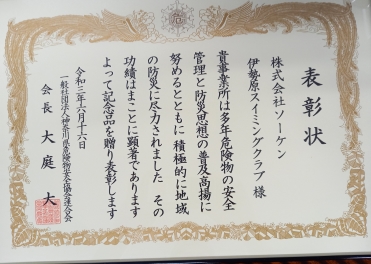 表彰状
株式会社ソーケン
伊勢原スイミングクラブ 様
貴事業所は多年危険物の安全
管理と防災思想の普及高揚に
努めるとともに 積極的に地域
の防災に尽力されました その
功績はまことに顕著であります
よって記念品を贈り表彰します
令和三年六月十六日
一般社団法人神奈川県危険物安全協会連合会
会長 大庭 大